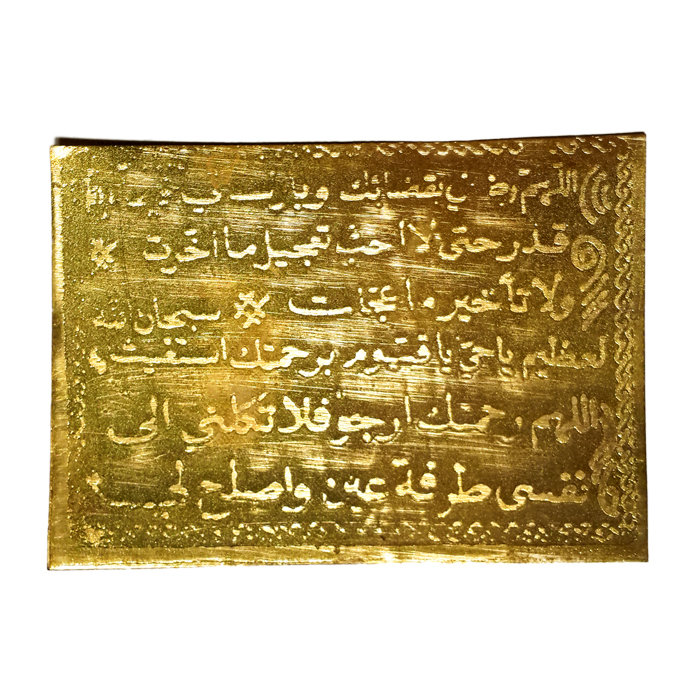 اللهم رضني بقضائك وبارك لي
قدر حتى لا احب تعجيل ما اخرت
ولا تأخير ما عجلت سبحان الله
لعظيم ياحي ياقيوم برحمتك استغيث
اللهم رحمتك ارجو فلا تكلني الى
نفسي طرفة عين واصلح لي